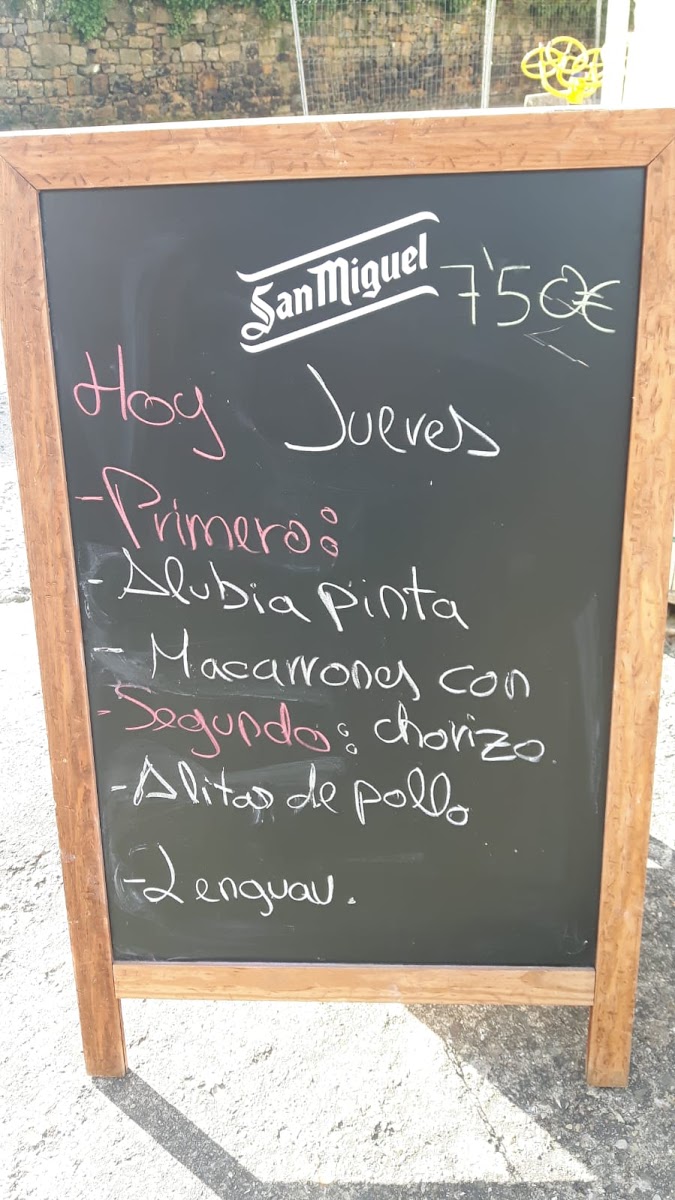 San Miguel
7'50€
Hoy Jueves
- Primero:
- Alubia pinta
- Macarrones con
- Segundo: chorizo
- Alitas de pollo
- Lenguau.